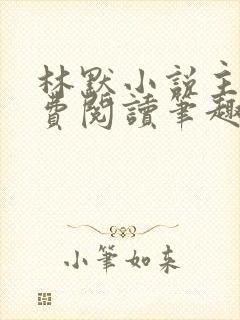 林默小说主
費閱讀筆趣
小筆如来